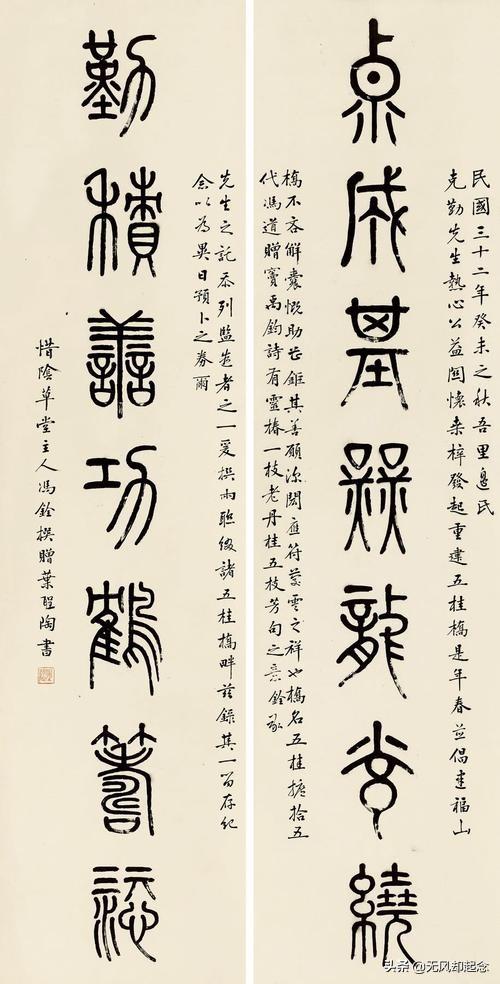 成基龍光繞
民國三十二年癸未之秋吾里邊氏
克勤先生熱心公益關懷桑梓發起重建五桂橋是年春並倡建福山
橋不吝解囊慨助鉅其善願深閎符慈雲之祥也橋名五桂摭拾五
代馮道贈竇禹鈞詩有靈椿一枝老丹桂五枝芳句之意銓承
勤積善功鶴壽添
先生之託忝列監造者之一爰撰兩聯綴諸五桂橋畔茲錄其一留存紀
念以為異日預卜之券爾
惜陰草堂主人馮銓撰贈葉聖陶書
头条 @无风却起念